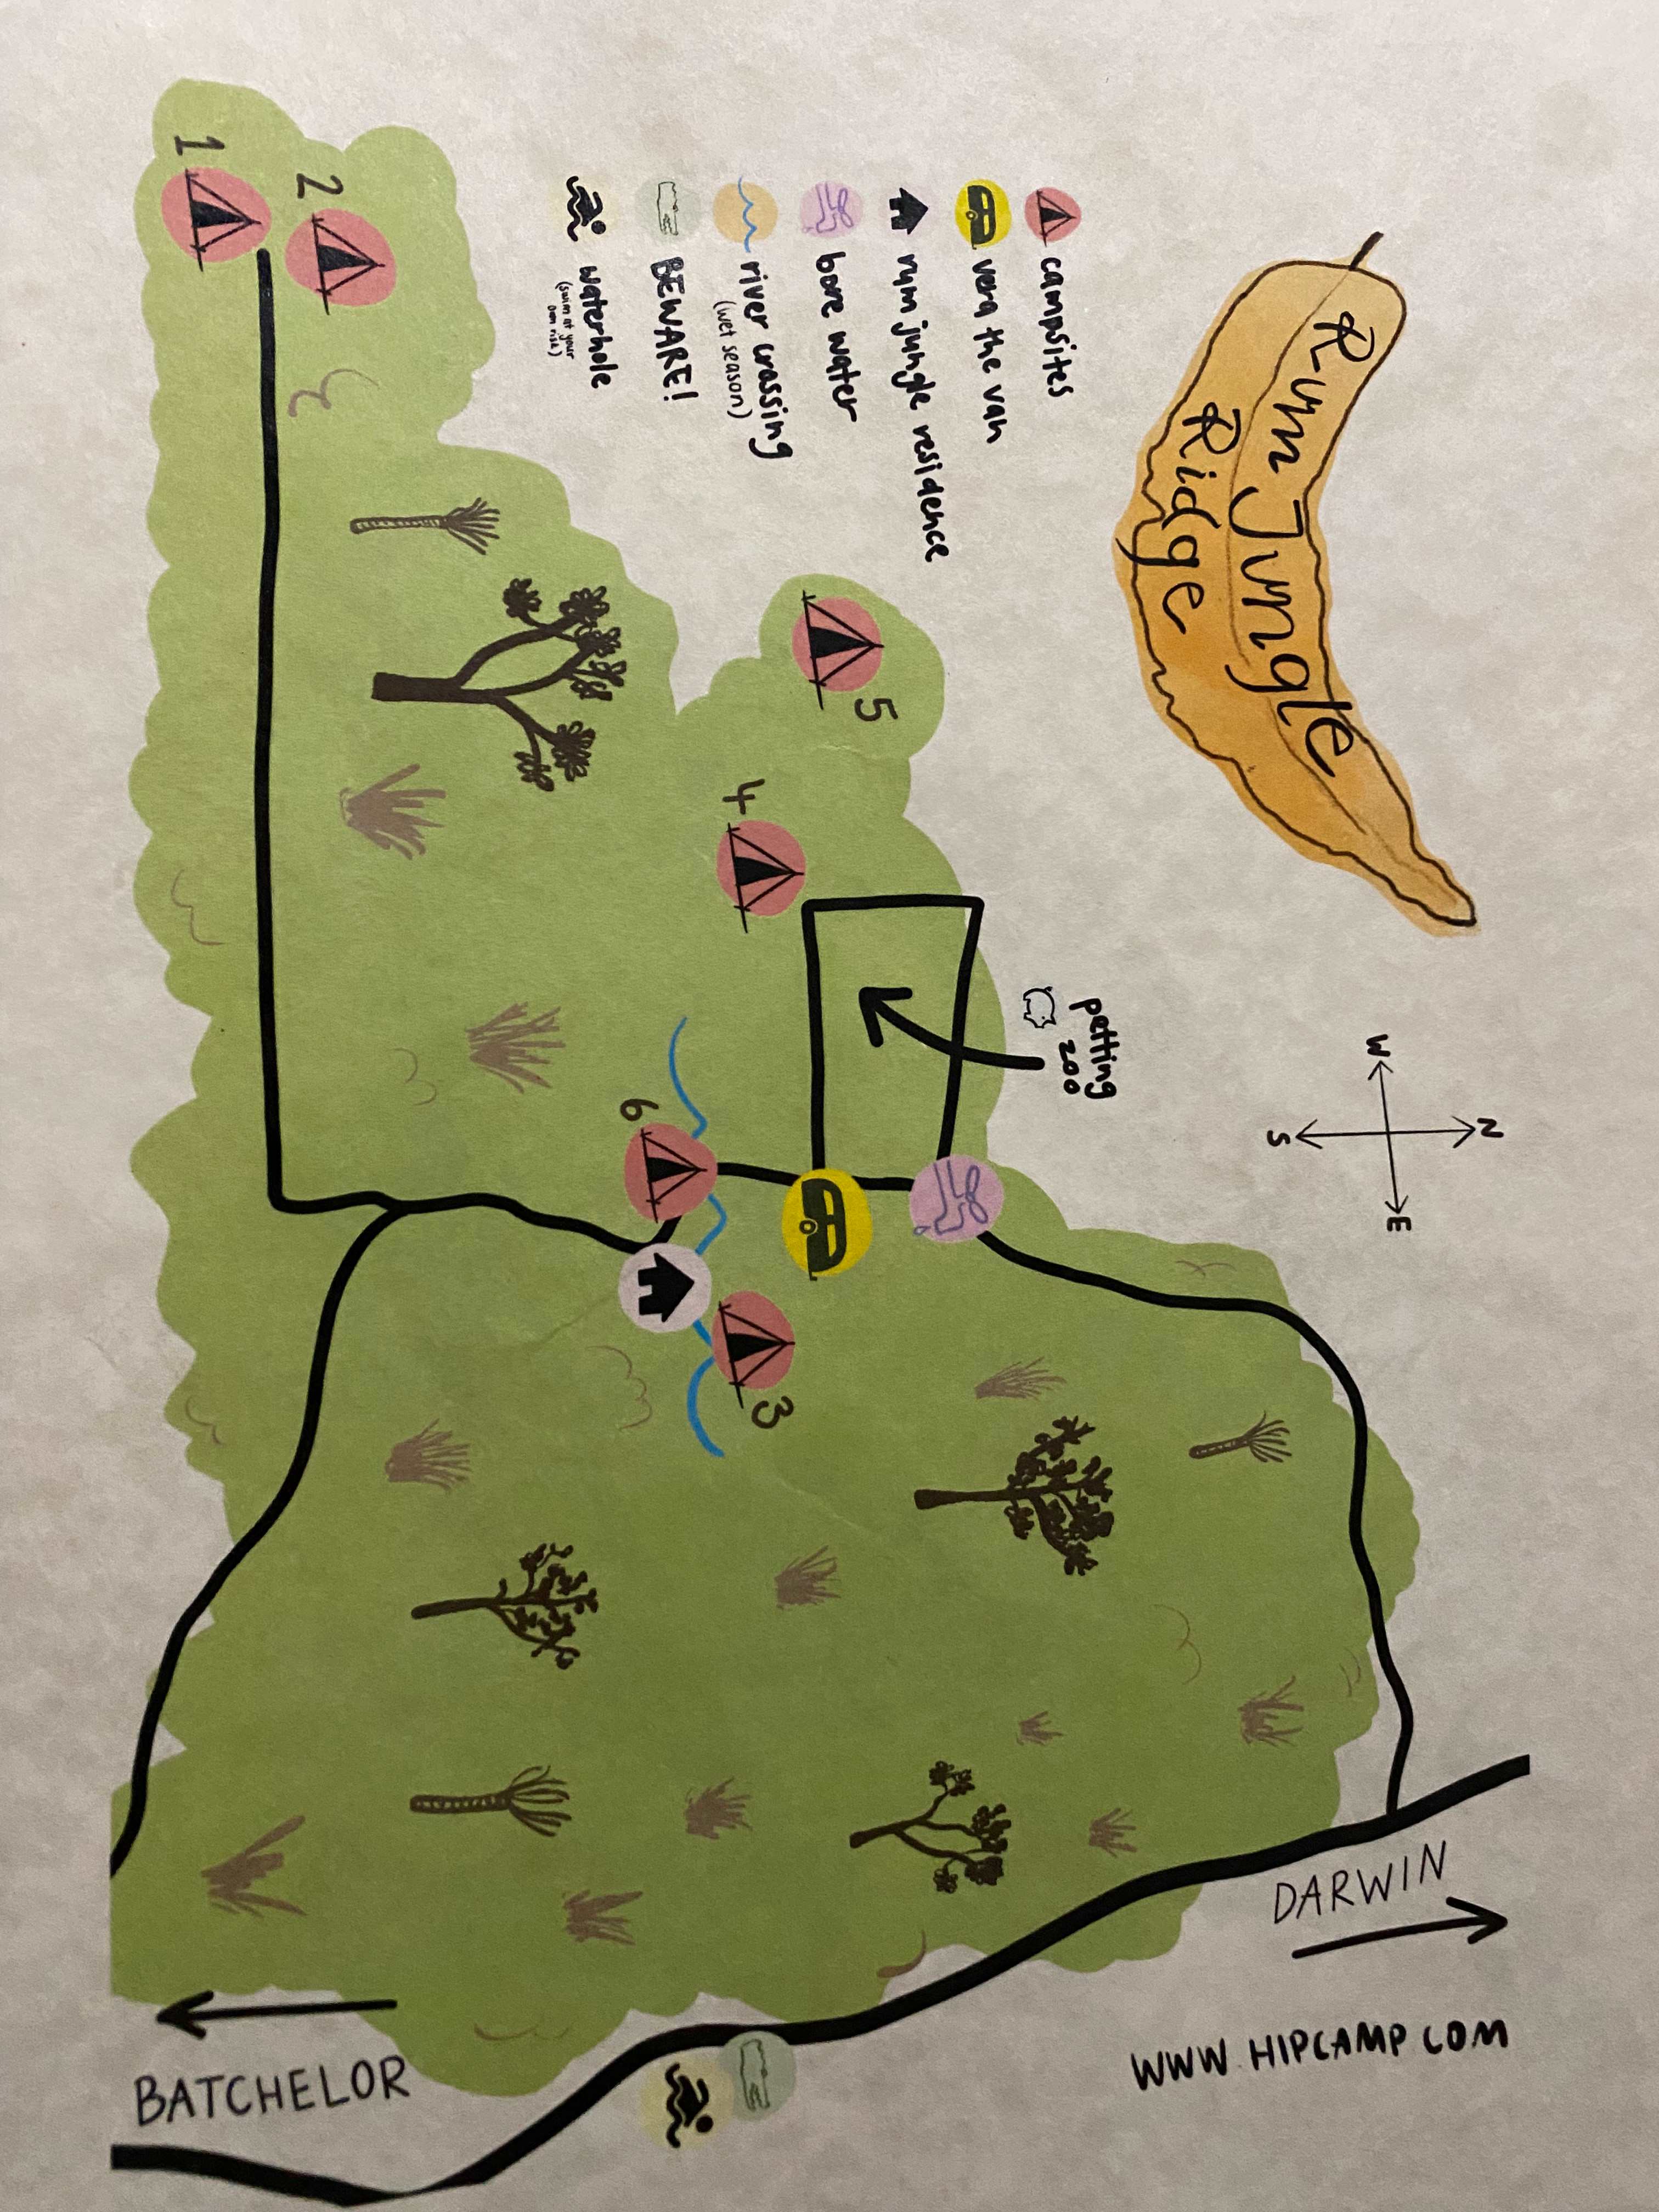 Rum Jungle
Ridge
campsites
vera the van
rum jungle residence
bore water
river crossing
(wet season)
BEWARE!
waterhole
(swim at your
own risk)
petting
zoo
N
W
E
S
1
2
5
4
6
3
DARWIN
BATCHELOR
WWW.HIPCAMP.COM